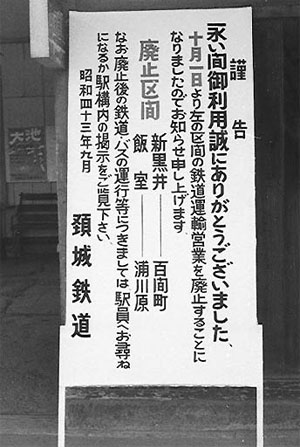 謹告
永い間御利用誠にありがとうございました、
十月一日より左の区間の鉄道運輸営業を廃止することに
なりましたのでお知らせ申し上げます
廃止区間
新黒井――百間町
飯室――浦川原
なお廃止後の鉄道・バスの運行等につきましては駅員へお尋ね
になるか駅構内の掲示をご覧下さい、
昭和四十三年九月
頚城鉄道
大池